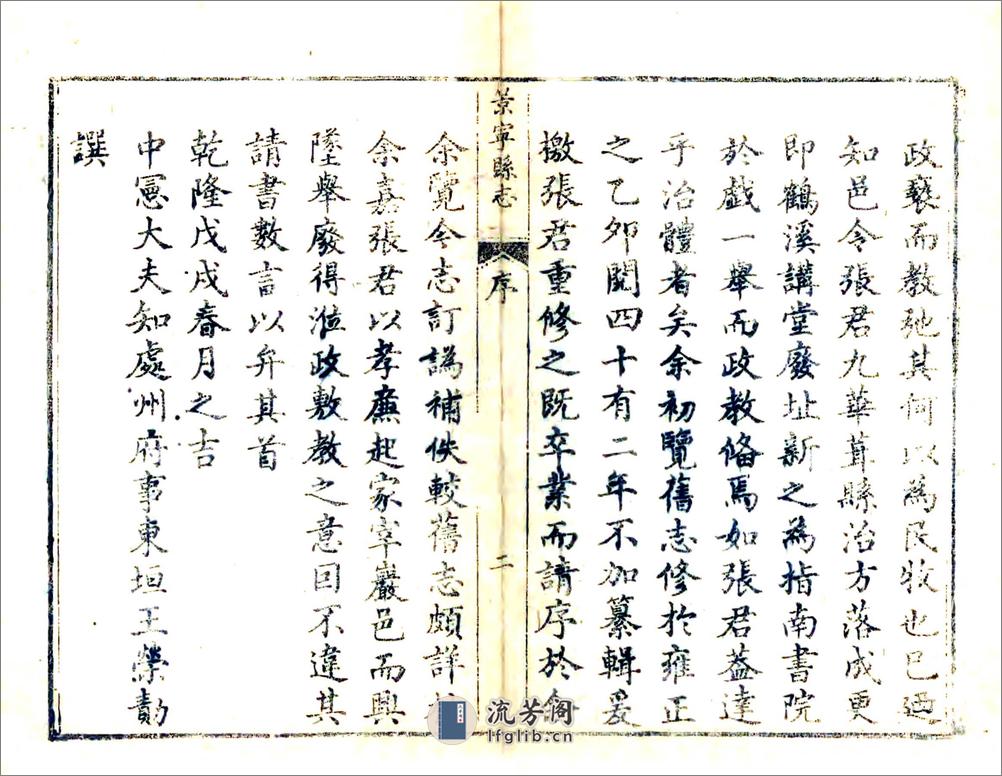 政而教弛其何以為民牧也已廼
知邑令張君九華葺縣治方落成更
即鶴溪講堂廢址新之為指南書院
於戲一舉而政教俻焉如張君蓋達
乎治體者矣余初覽舊志修於雍正
之乙卯閱四十有二年不加纂輯爰
檄張君重修之既卒業而請序於余
景寧縣志
序
二
余覽今志訂譌補佚較舊志頗詳
余嘉張君以孝廉起家宰巖邑而興
墜舉廢得涖政敷教之意因不違其
請書數言以弁其首
乾隆戊戌春月之吉
中憲大夫知處州府事東垣王榮勣
譔
流芳阁
lfglib.cn